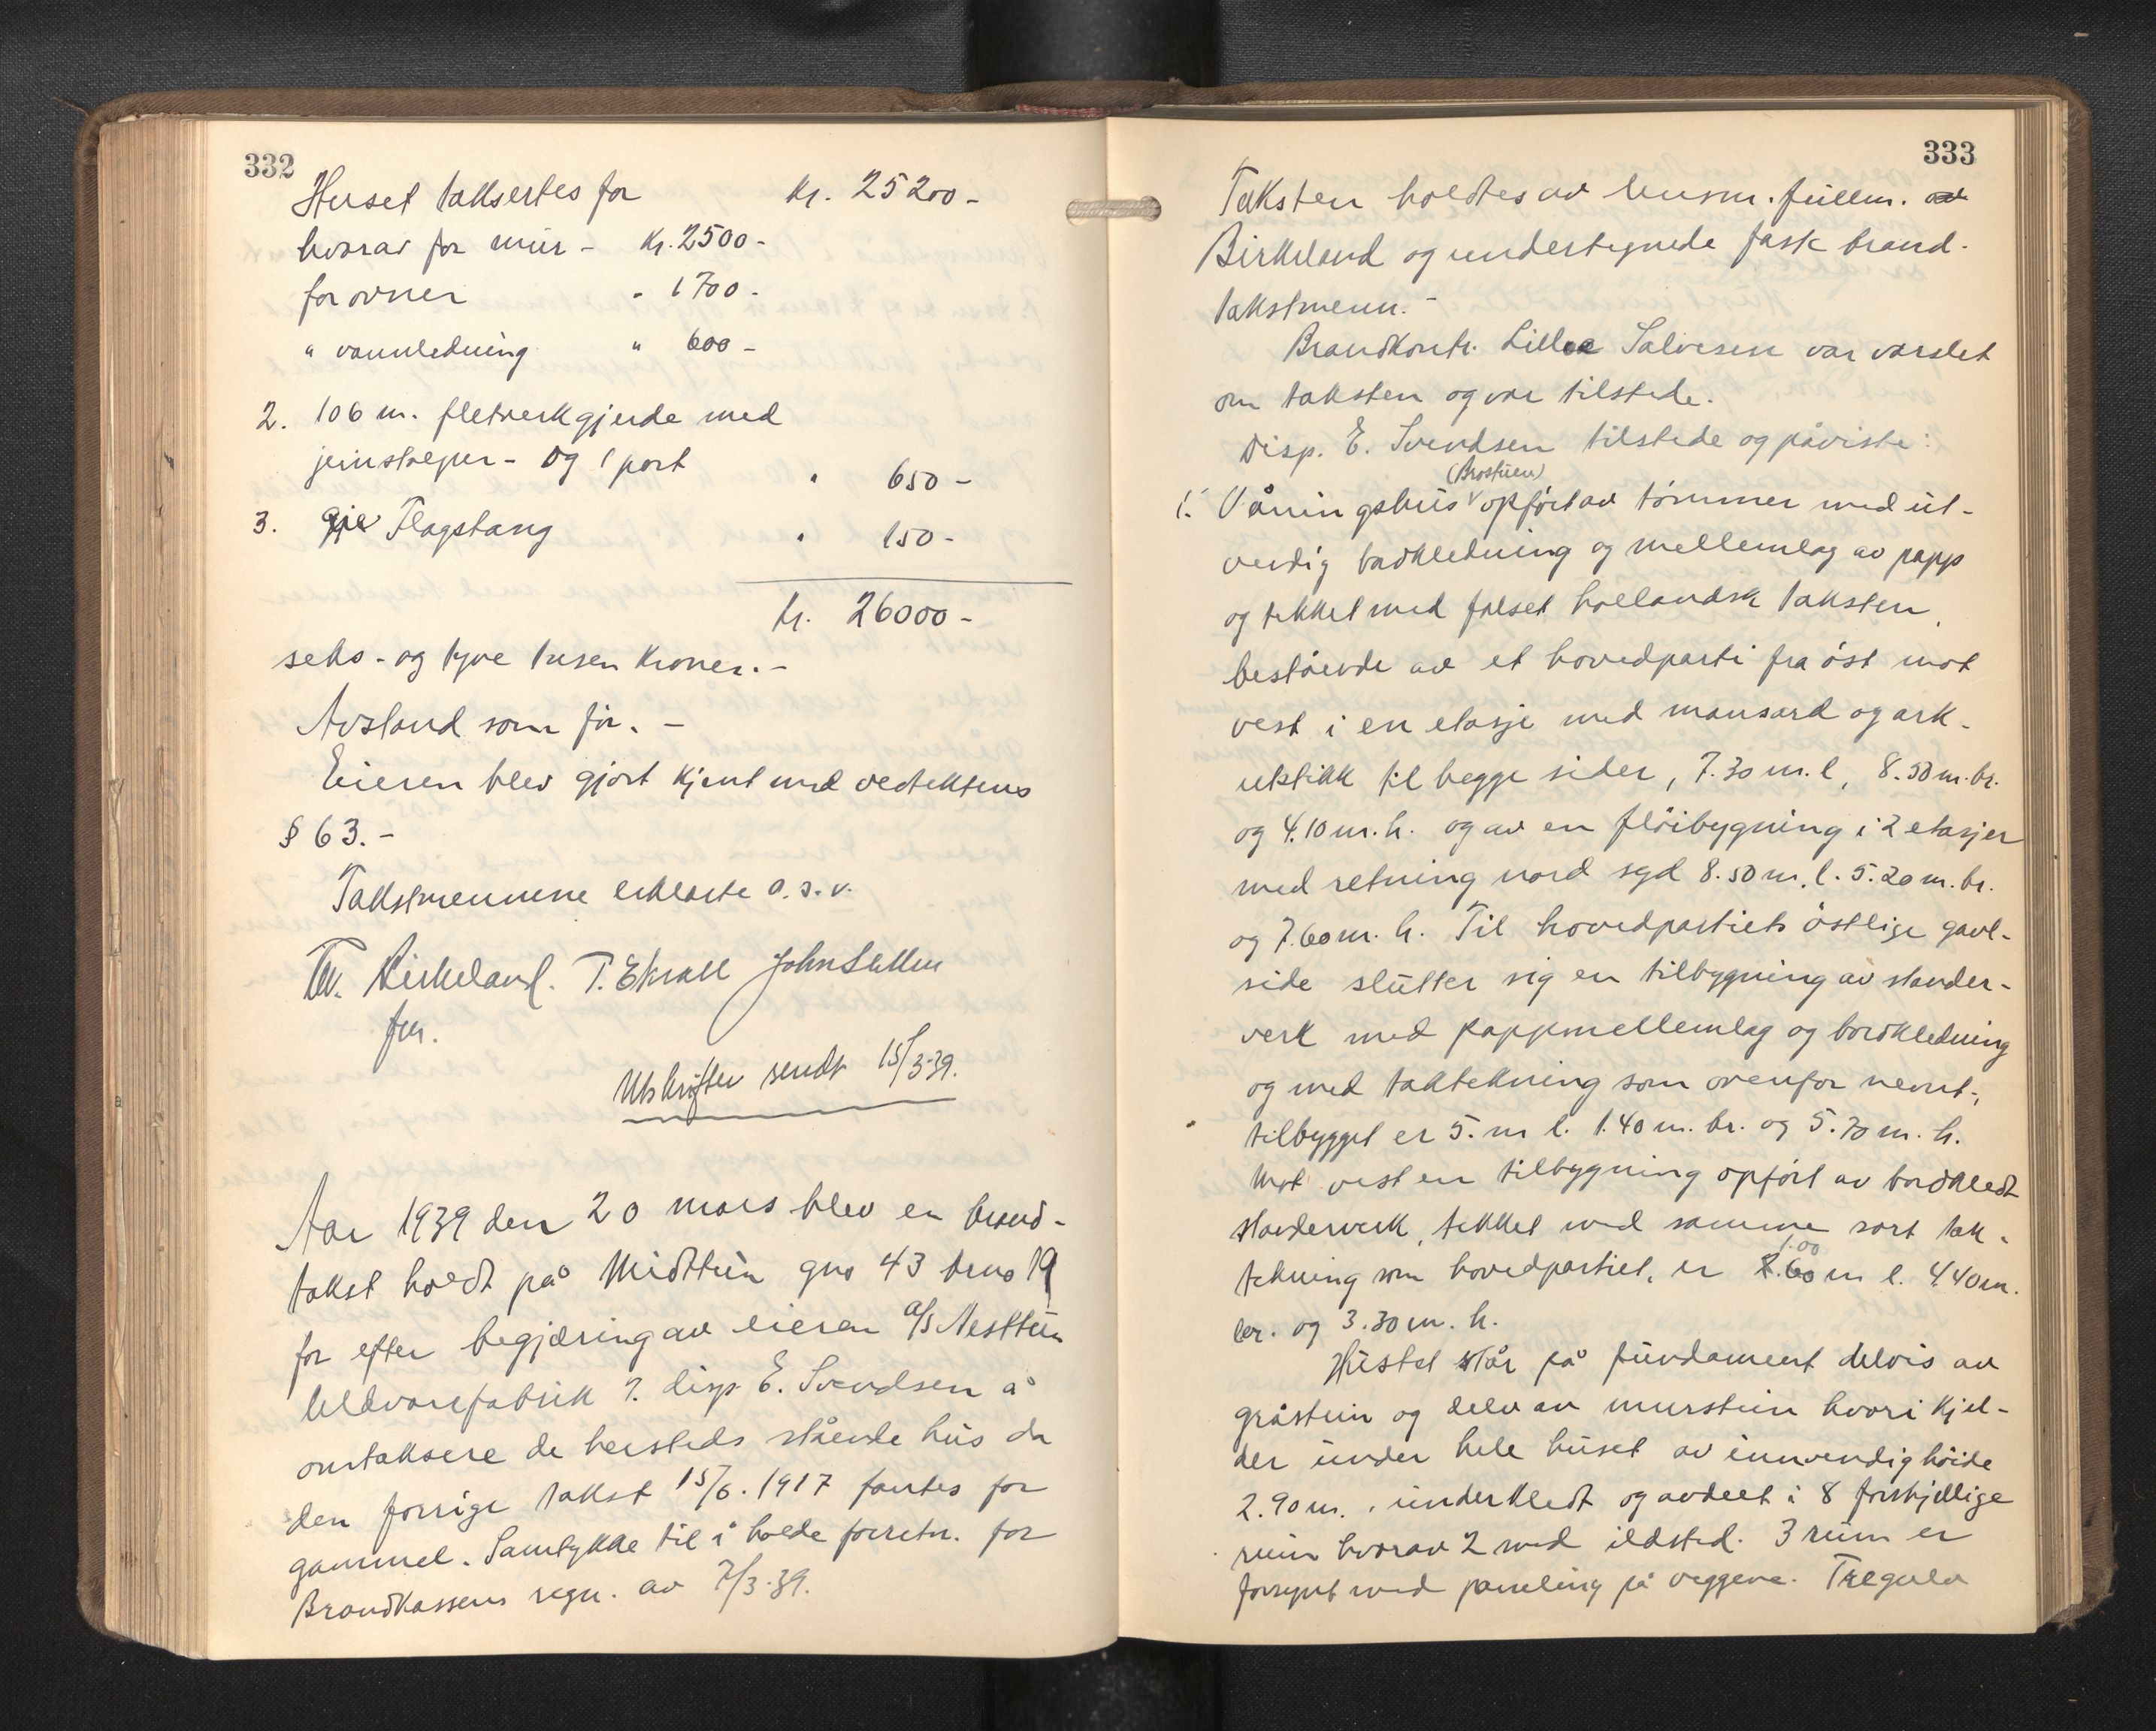 332
Huset taksertes for kr. 25200-
hvorav for mur - kr. 2500-
for ovner " 1700-
" vannledning " 600-
2. 106 m. fletverkgjerde med
jernstolper - og 1 port " 650-
3. Flagstang " 150-
kr. 26000-
seks-og tyve tusen kroner.-
Avstand som før.-
Eieren blev gjort kjent med vedtektens
§ 63.-
Takstmennene erklærte o.s.v.
Birkeland. T. Ekrall John
fm.
Utskrifter sendt 15/3-39.
Aar 1939 den 20 mars blev en brand-
takst holdt på Midttun gno 43 bruno 19
for efter begjæring av eieren A/S Nesttun
Uldvarefabrik v. disp. E. Svendsen å
omtaksere de hersteds stående hus da
den forrige takst 15/6.1917 fantes for
gammel. Samtykke til å holde forretn. for
Brandkassens regn. av 7/3-39.
333
Taksten holdtes av lensm. fullm.
Birkeland og undertegnede faste brand-
takstmenn.-
Brandkontr. Salvesen var varslet
om taksten og var tilstede.
Disp. E. Svendsen tilstede og påviste:
(Brostuen)
1. Våningshus opført av tømmer med ut-
vendig bordkledning og mellemlag av papp
og tekket med falset hollandsk taksten,
bestående av et hovedparti fra øst mot
vest i en etasje med mansard og ark-
utstikk til begge sider, 7.30 m. l, 8.50 m. br.
og 4.10 m. h. og av en fløibygning i 2 etasjer
med retning nord syd 8.50 m. l. 5.20 m. br.
og 7.60 m. h. Til hovedpartiets østlige gavl-
side slutter sig en tilbygning av stander-
verk med pappmellemlag og bordkledning
og med taktekning som ovenfor nevnt;
tilbygget er 5. m l. 1.40 m. br. og 5.70 m. h.
Mot vest en tilbygning opført av bordkledt
standerverk, tekket med samme sort tak-
1.00
tekning som hovedpartiet, er m l. 4.40 m.
br. og 3.30 m. h.
Huset står på fundament delvis av
gråstein og delv av murstein hvori kjel-
der under hele huset av innvendig høide
2.90 m., underkledt og avdelt i 8 forskjellige
rum hvorav 2 med ildsted. 3 rum er
forsynt med paneling på veggene. Tregulv